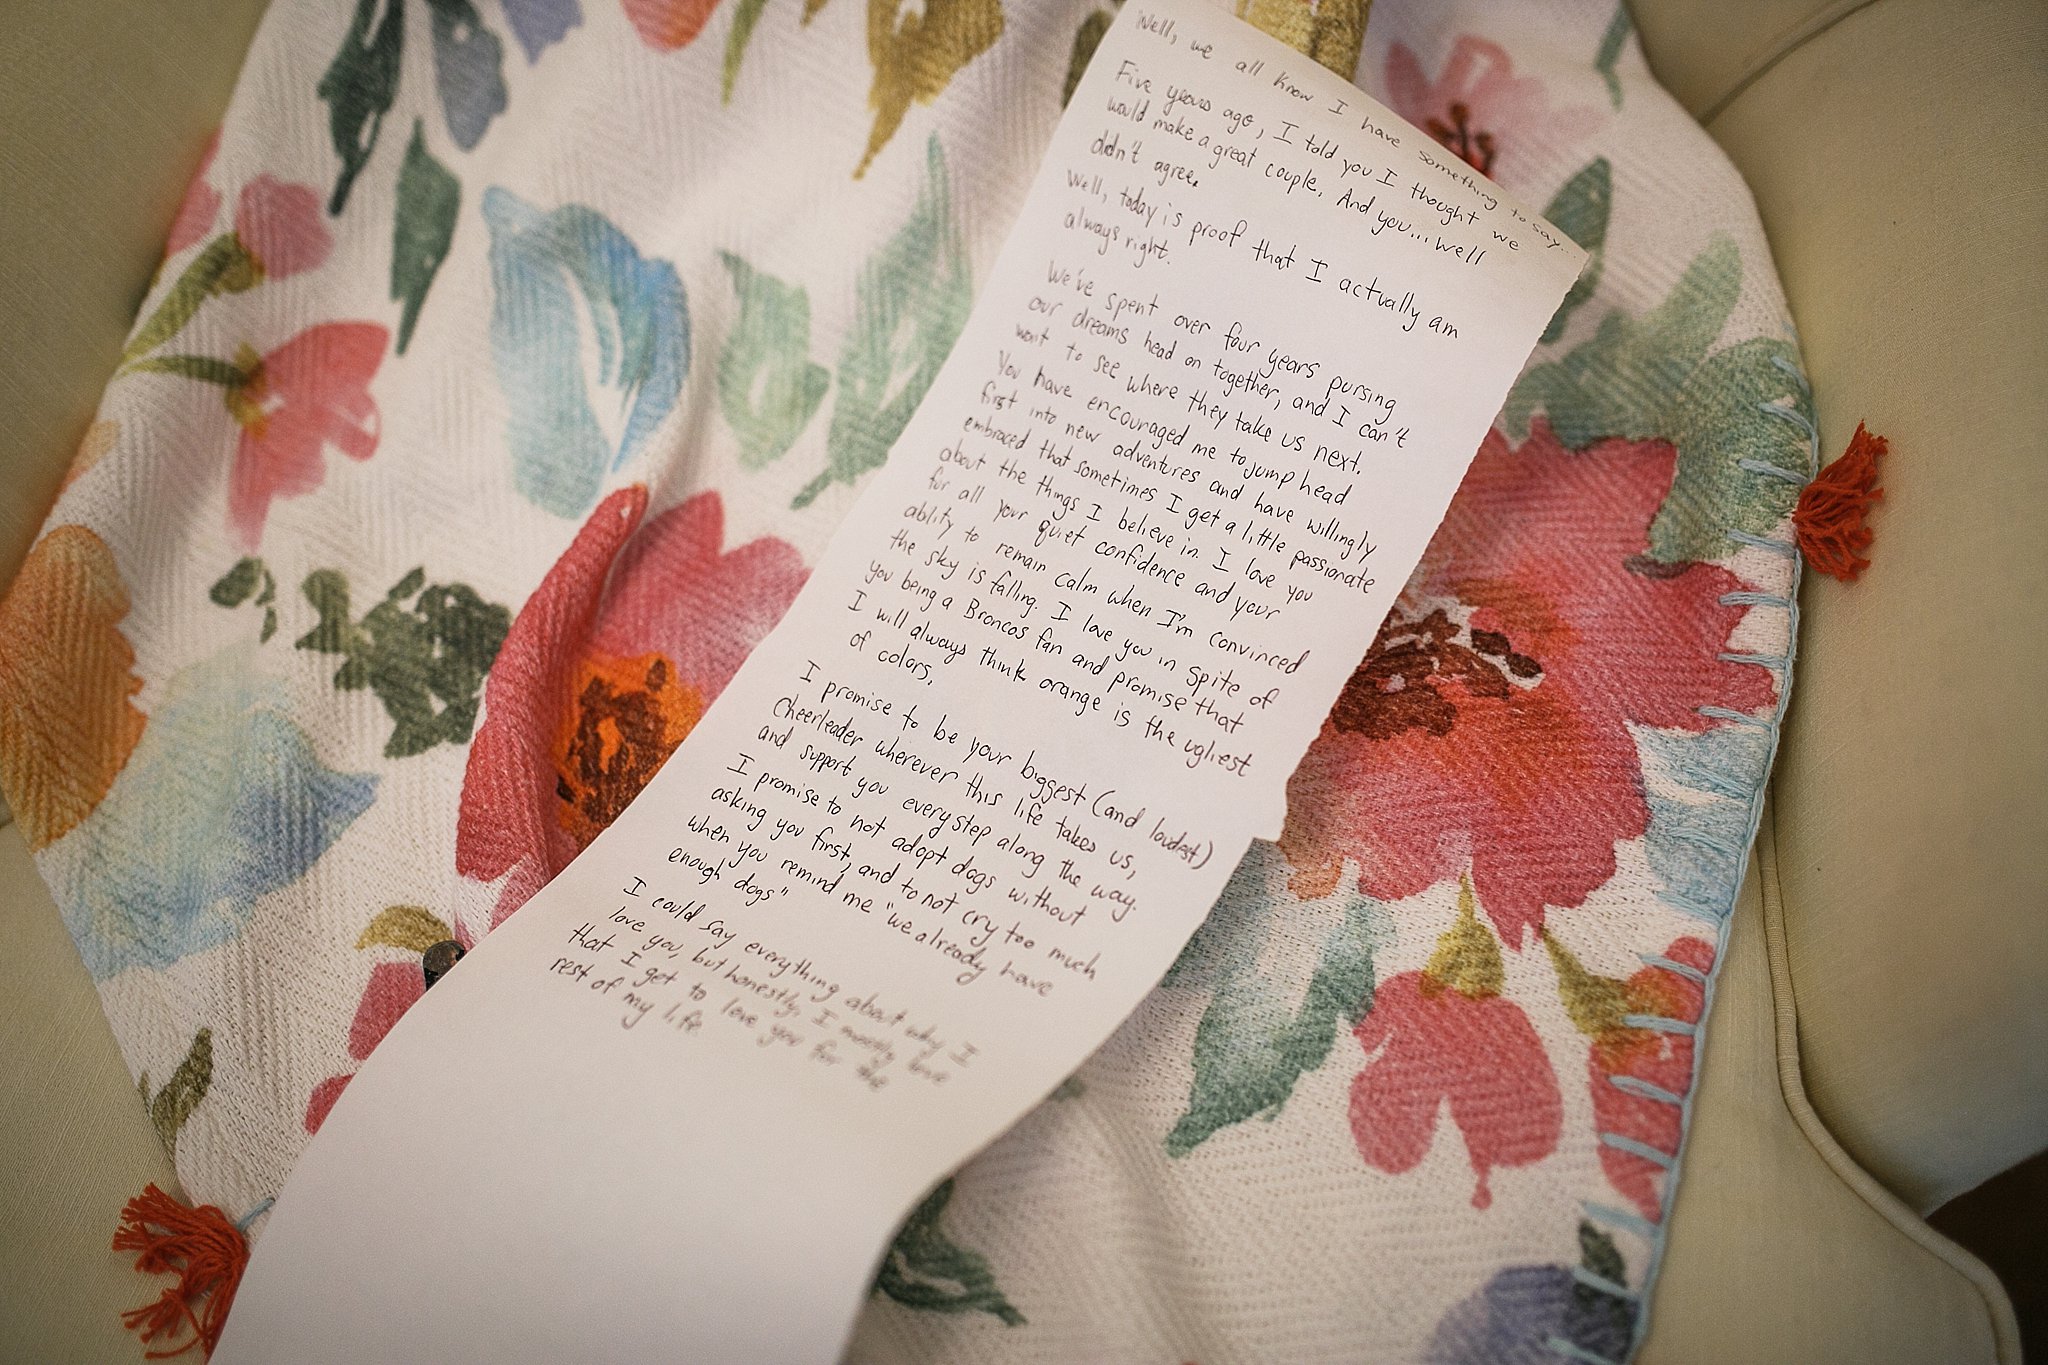 Well, we all know I have something to say...
Five years ago, I told you I thought we
would make a great couple. And you... well
didn't agree.
Well, today is proof that I actually am
always right.
We've spent over four years pursing
our dreams head on together, and I can't
wait to see where they take us next.
You have encouraged me to jump head
first into new adventures and have willingly
embraced that sometimes I get a little passionate
about the things I believe in. I love you
for all your quiet confidence and your
ability to remain calm when I'm convinced
the sky is falling. I love you in spite of
you being a Broncos fan and promise that
I will always think orange is the ugliest
of colors.
I promise to be your biggest (and loudest)
Cheerleader wherever this life takes us,
and support you every step along the way.
I promise to not adopt dogs without
asking you first, and to not cry too much
when you remind me "we already have
enough dogs"
I could say everything about why I
love you, but honestly, I mostly love
that I get to love you for the
rest of my life